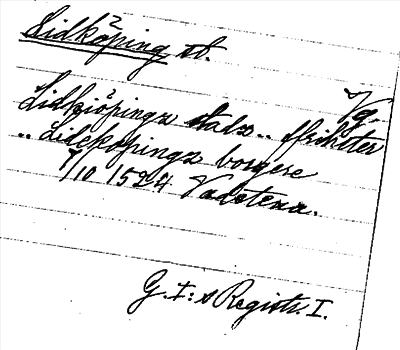 Lidköping st.
Vg.
Lidkiöpingx stadx.. ffrihter
.. Lidekopingx borgere
7/10 1524 Vadstena.
G. I:s Registr. I.